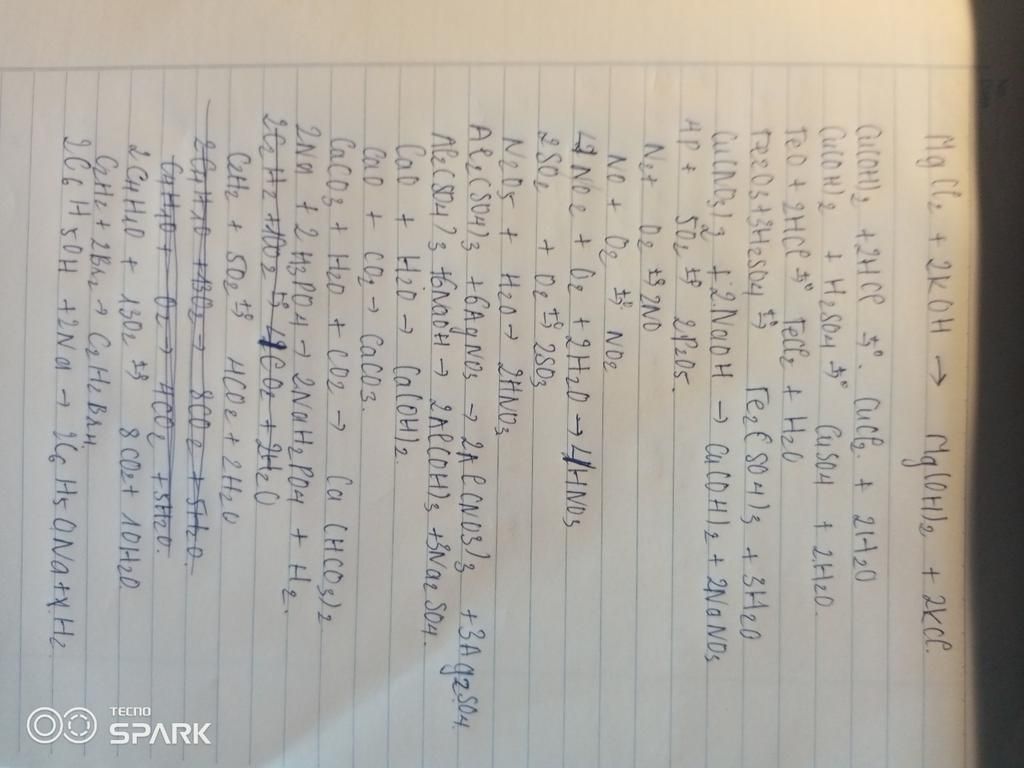 MgCl2 + 2KOH → Mg(OH)2 + 2KCl.
Cu(OH)2 + 2HCl t° CuCl2 + 2H2O
Cu(OH)2 + H2SO4 t° CuSO4 + 2H2O.
FeO + 2HCl t° FeCl2 + H2O
Fe2O3 + 3H2SO4 t° Fe2(SO4)3 + 3H2O
Cu(NO3)2 + 2NaOH → Cu(OH)2 + 2NaNO3
4P + 5O2 t° 2P2O5.
N2 + O2 t° 2NO
NO + O2 t° NO2
4NO2 + O2 + 2H2O → 4HNO3
2SO2 + O2 t° 2SO3
N2O5 + H2O → 2HNO3
Al2(SO4)3 + 6AgNO3 → 2Al(NO3)3 + 3Ag2SO4
Al2(SO4)3 + 6NaOH → 2Al(OH)3 + 3Na2SO4.
CaO + H2O → Ca(OH)2.
CaO + CO2 → CaCO3.
CaCO3 + H2O + CO2 → Ca(HCO3)2
2Na + 2H3PO4 → 2NaH2PO4 + H2.
2C2H2 + O2 t° 4CO2 + 2H2O
C2H2 + 5O2 t° 4CO2 + 2H2O
2C4H10 + 13O2 → 8CO2 + 5H2O
C4H10 + O2 → 4CO2 + 5H2O.
2C4H10 + 13O2 t° 8CO2 + 10H2O.
C2H2 + 2Br2 → C2H2Br4
2C6H5OH + 2Na → 2C6H5ONa + H2.
TECNO
SPARK